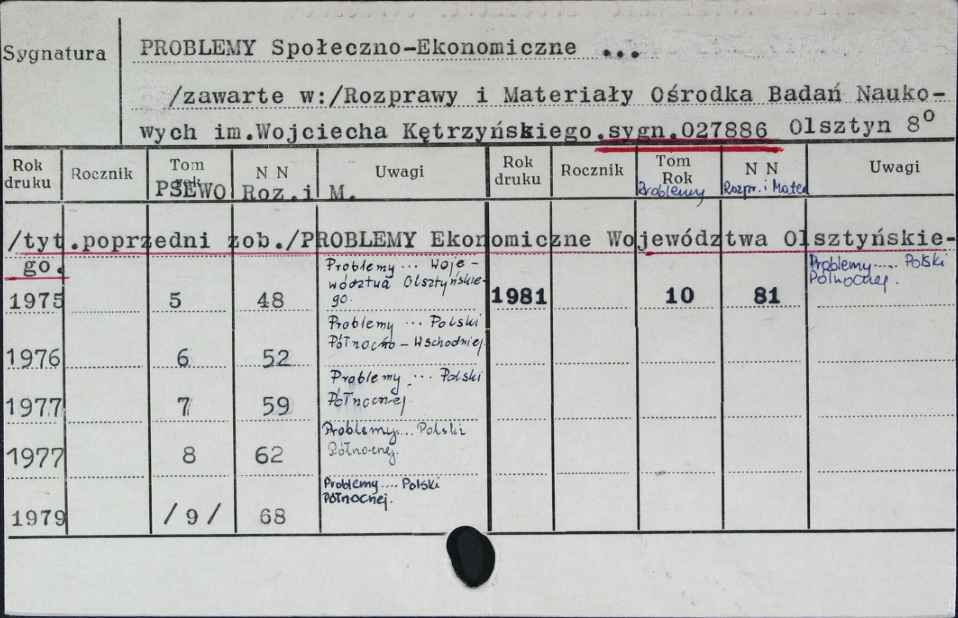 Sygnatura
PROBLEMY Społeczno-Ekonomiczne ...
/zawarte w:/Rozprawy i Materiały Ośrodka Badań Nauko-
wych im.Wojciecha Kętrzyńskiego.sygn.027886 Olsztyn 8°
Rok druku Rocznik Tom Rok N N Uwagi Rok druku Rocznik Tom Rok N N Uwagi
PSEWO Roz.i M. Problemy Rozpr. i Mater
/tyt.poprzedni zob./PROBLEMY Ekonomiczne Województwa Olsztyńskie-
go.
1975 5 48 Problemy ... Woje-
wództwa Olsztyńskie-
go.
1981 10 81 Problemy .... Polski
Północnej.
1976 6 52 Problemy ... Polski
Północno - Wschodniej.
1977 7 59 Problemy ... Polski
Północnej.
1977 8 62 Problemy... Polski
Północnej.
1979 /9/ 68 Problemy .... Polski
Północnej.